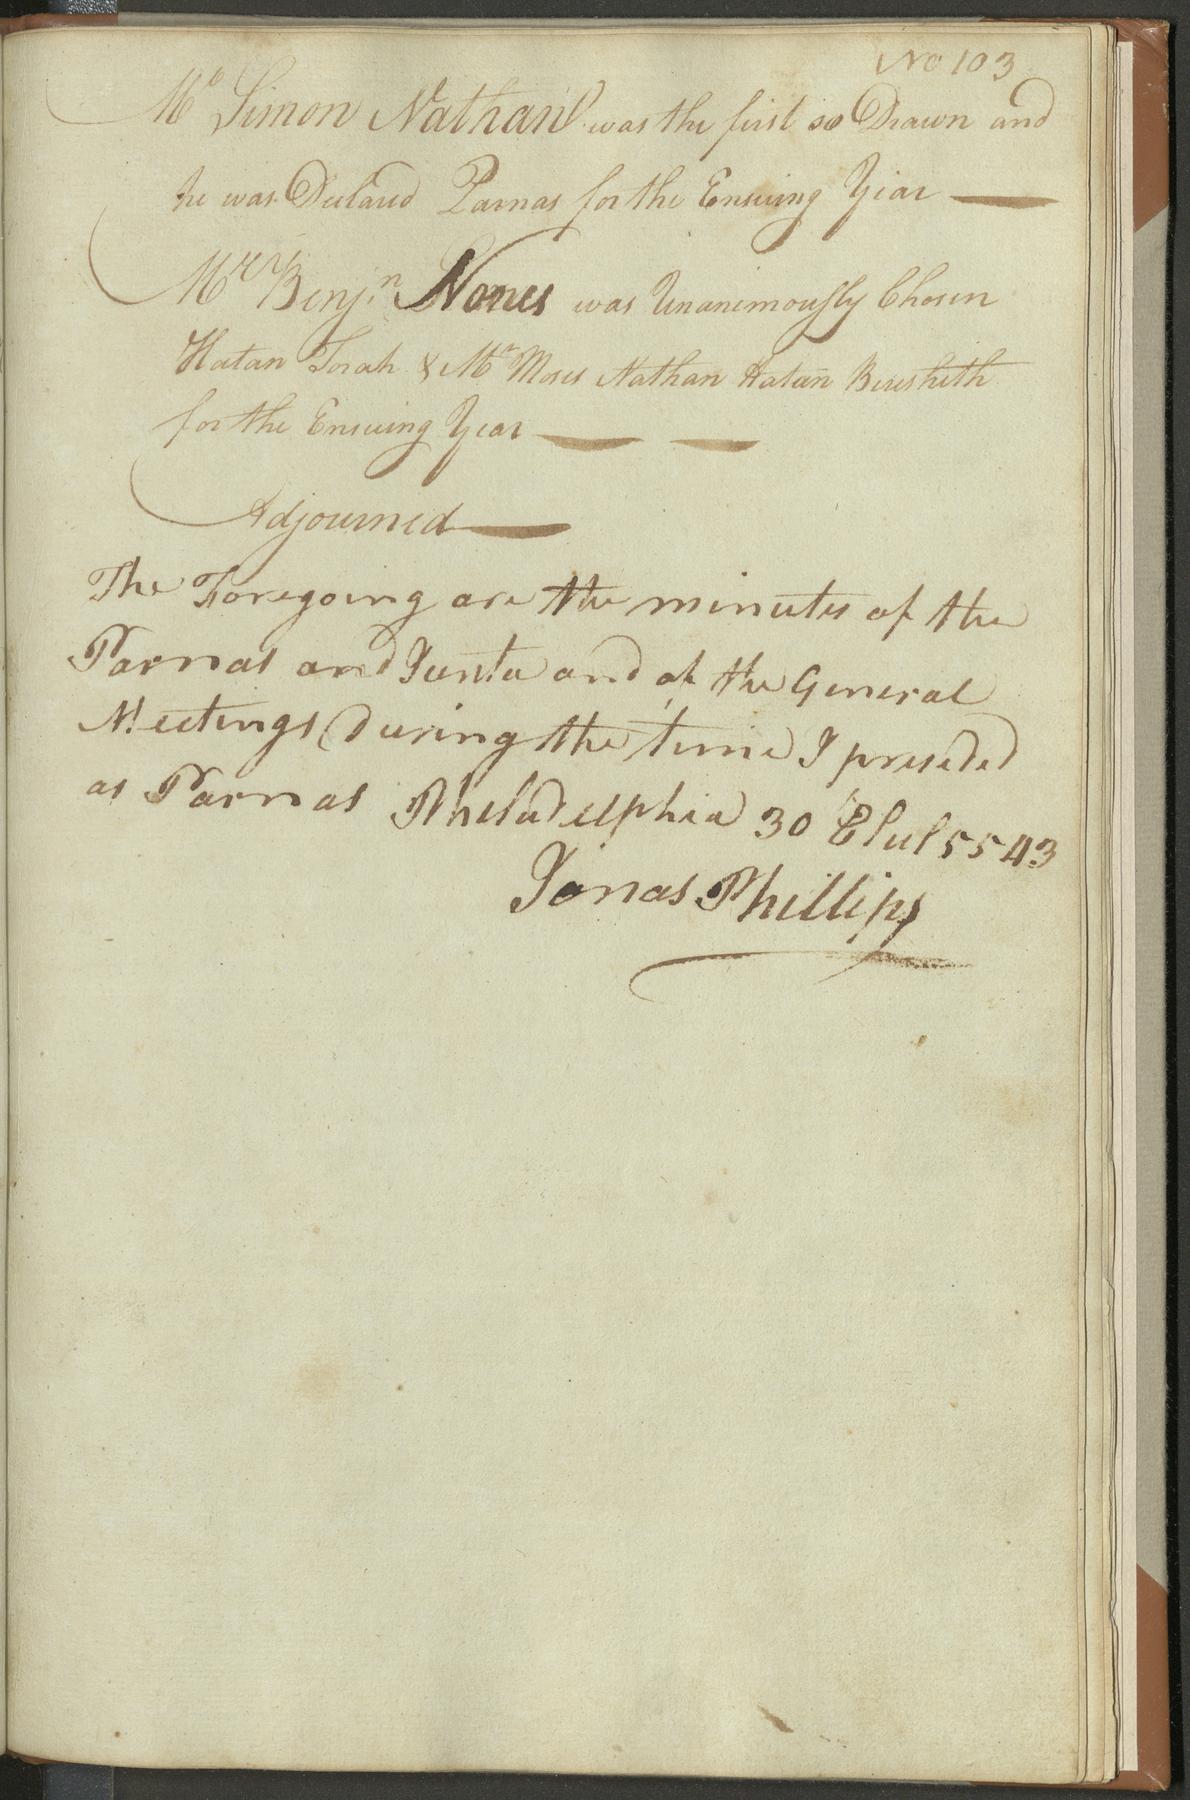 No 103
Mr Simon Nathan was the first so Drawn and
he was Declared Parnas for the Ensuing Year —
Mr Benjn. Nones was Unanimously Chosen
Hatan Torah & Mr Moses Nathan Hatan Bereshith
for the Ensuing Year — —
Adjourned —
The Foregoing are the minutes of the
Parnas and Junta and of the General
Meetings During the time I preseded
as Parnas Philadelphia 30 Elul 5543
Jonas Phillips